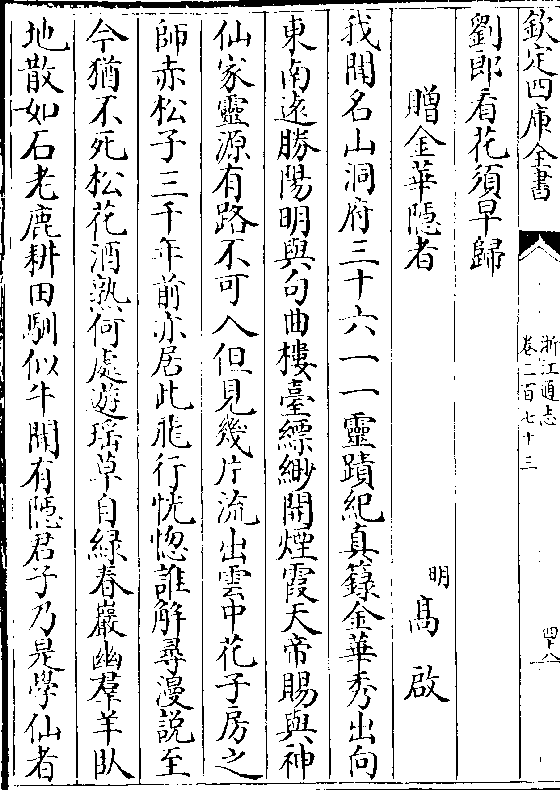 欽定四庫全書
浙江通志
卷二百七十三
四十八
劉郎看花須早歸
贈金華隱者
明
高啟
我聞名山洞府三十六一一靈蹟紀真籙金華秀出向
東南遠勝陽明與句曲樓臺縹緲開煙霞天帝賜與神
仙家靈源有路不可入但見幾片流出雲中花子房之
師赤松子三千年前亦居此飛行恍惚誰解尋漫説至
今猶不死松花酒熟何處遊瑶草自緑春巖幽羣羊臥
地散如石老鹿耕田馴似牛聞有隱君子乃是學仙者